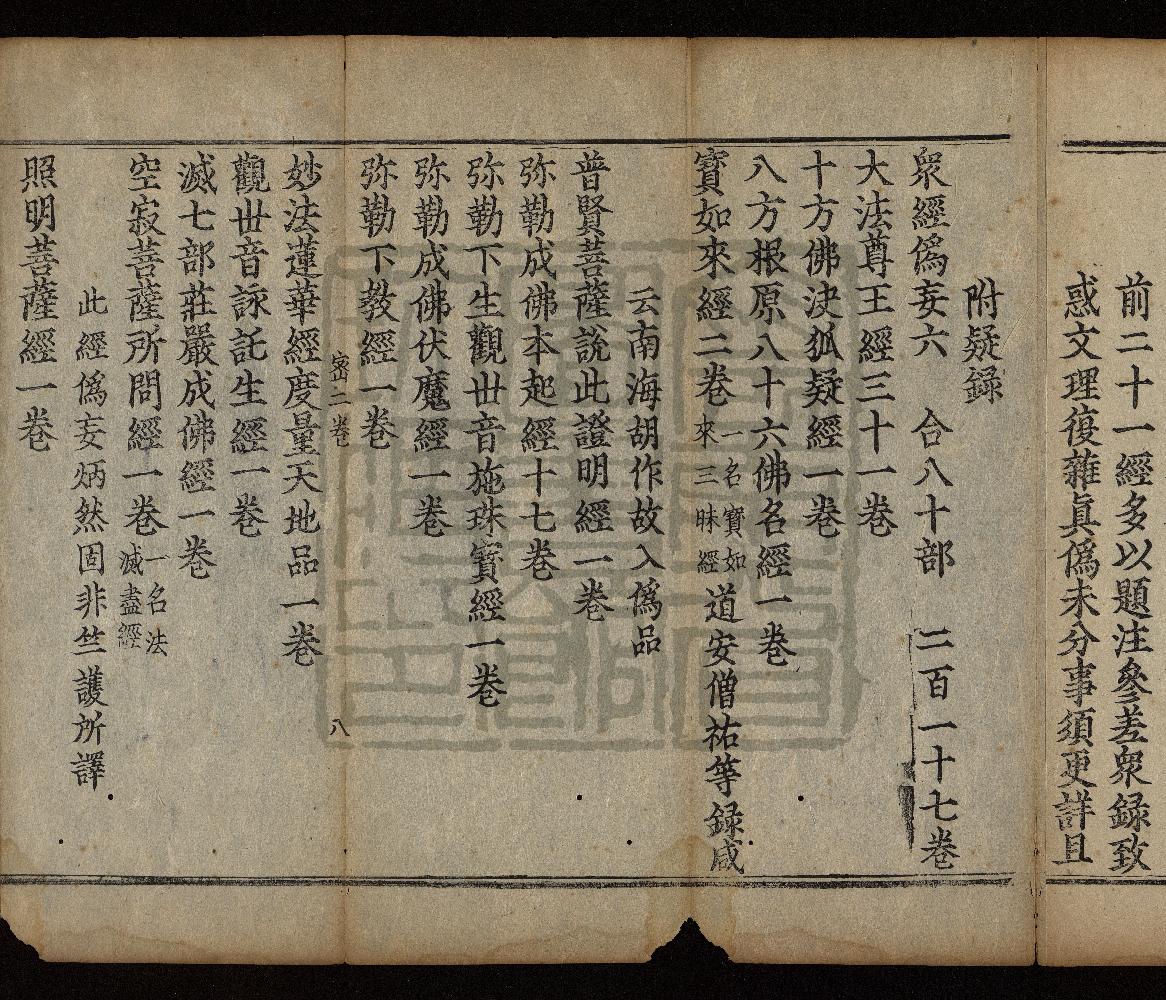 前二十一經多以題注參差衆録致
惑文理復雜真僞未分事須更詳且
附疑録
衆經僞妄六　合八十部　二百一十七巻
大法尊王經三十一巻
十方佛決狐疑經一巻
八方根原八十六佛名經一巻
寶如來經二巻一名寶如來三昧經道安僧祐等録咸
云南海胡作故入僞品
普賢菩薩說此證明經一巻
弥勒成佛本起經十七巻
弥勒下生觀世音施珠寶經一巻
弥勒成佛伏魔經一巻
弥勒下教經一巻
二巻　八
妙法蓮華經度量天地品一巻
觀世音詠託生經一巻
滅七部莊嚴成佛經一巻
空寂菩薩所問經一巻一名法滅盡經
此經僞妄炳然固非竺護所譯
照明菩薩經一巻